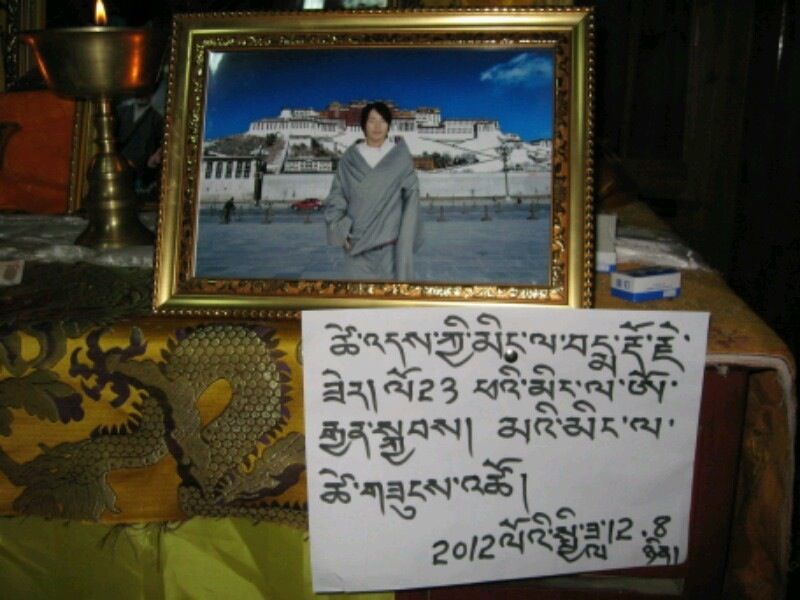 ཚེ་འདས་ཀྱི་མིང་ལ་བདྨ་རྡོ་རྗེ་
ཟེར། ལོ23 ཕའི་མིང་ལ་ཨོ་
རྒྱན་སྐྱབས། མའི་མིང་ལ་
ཚེ་གཟུངས་འཚོ།
2012ལོའི་སྤྱི་ཟླ་12.8
ཉིན།